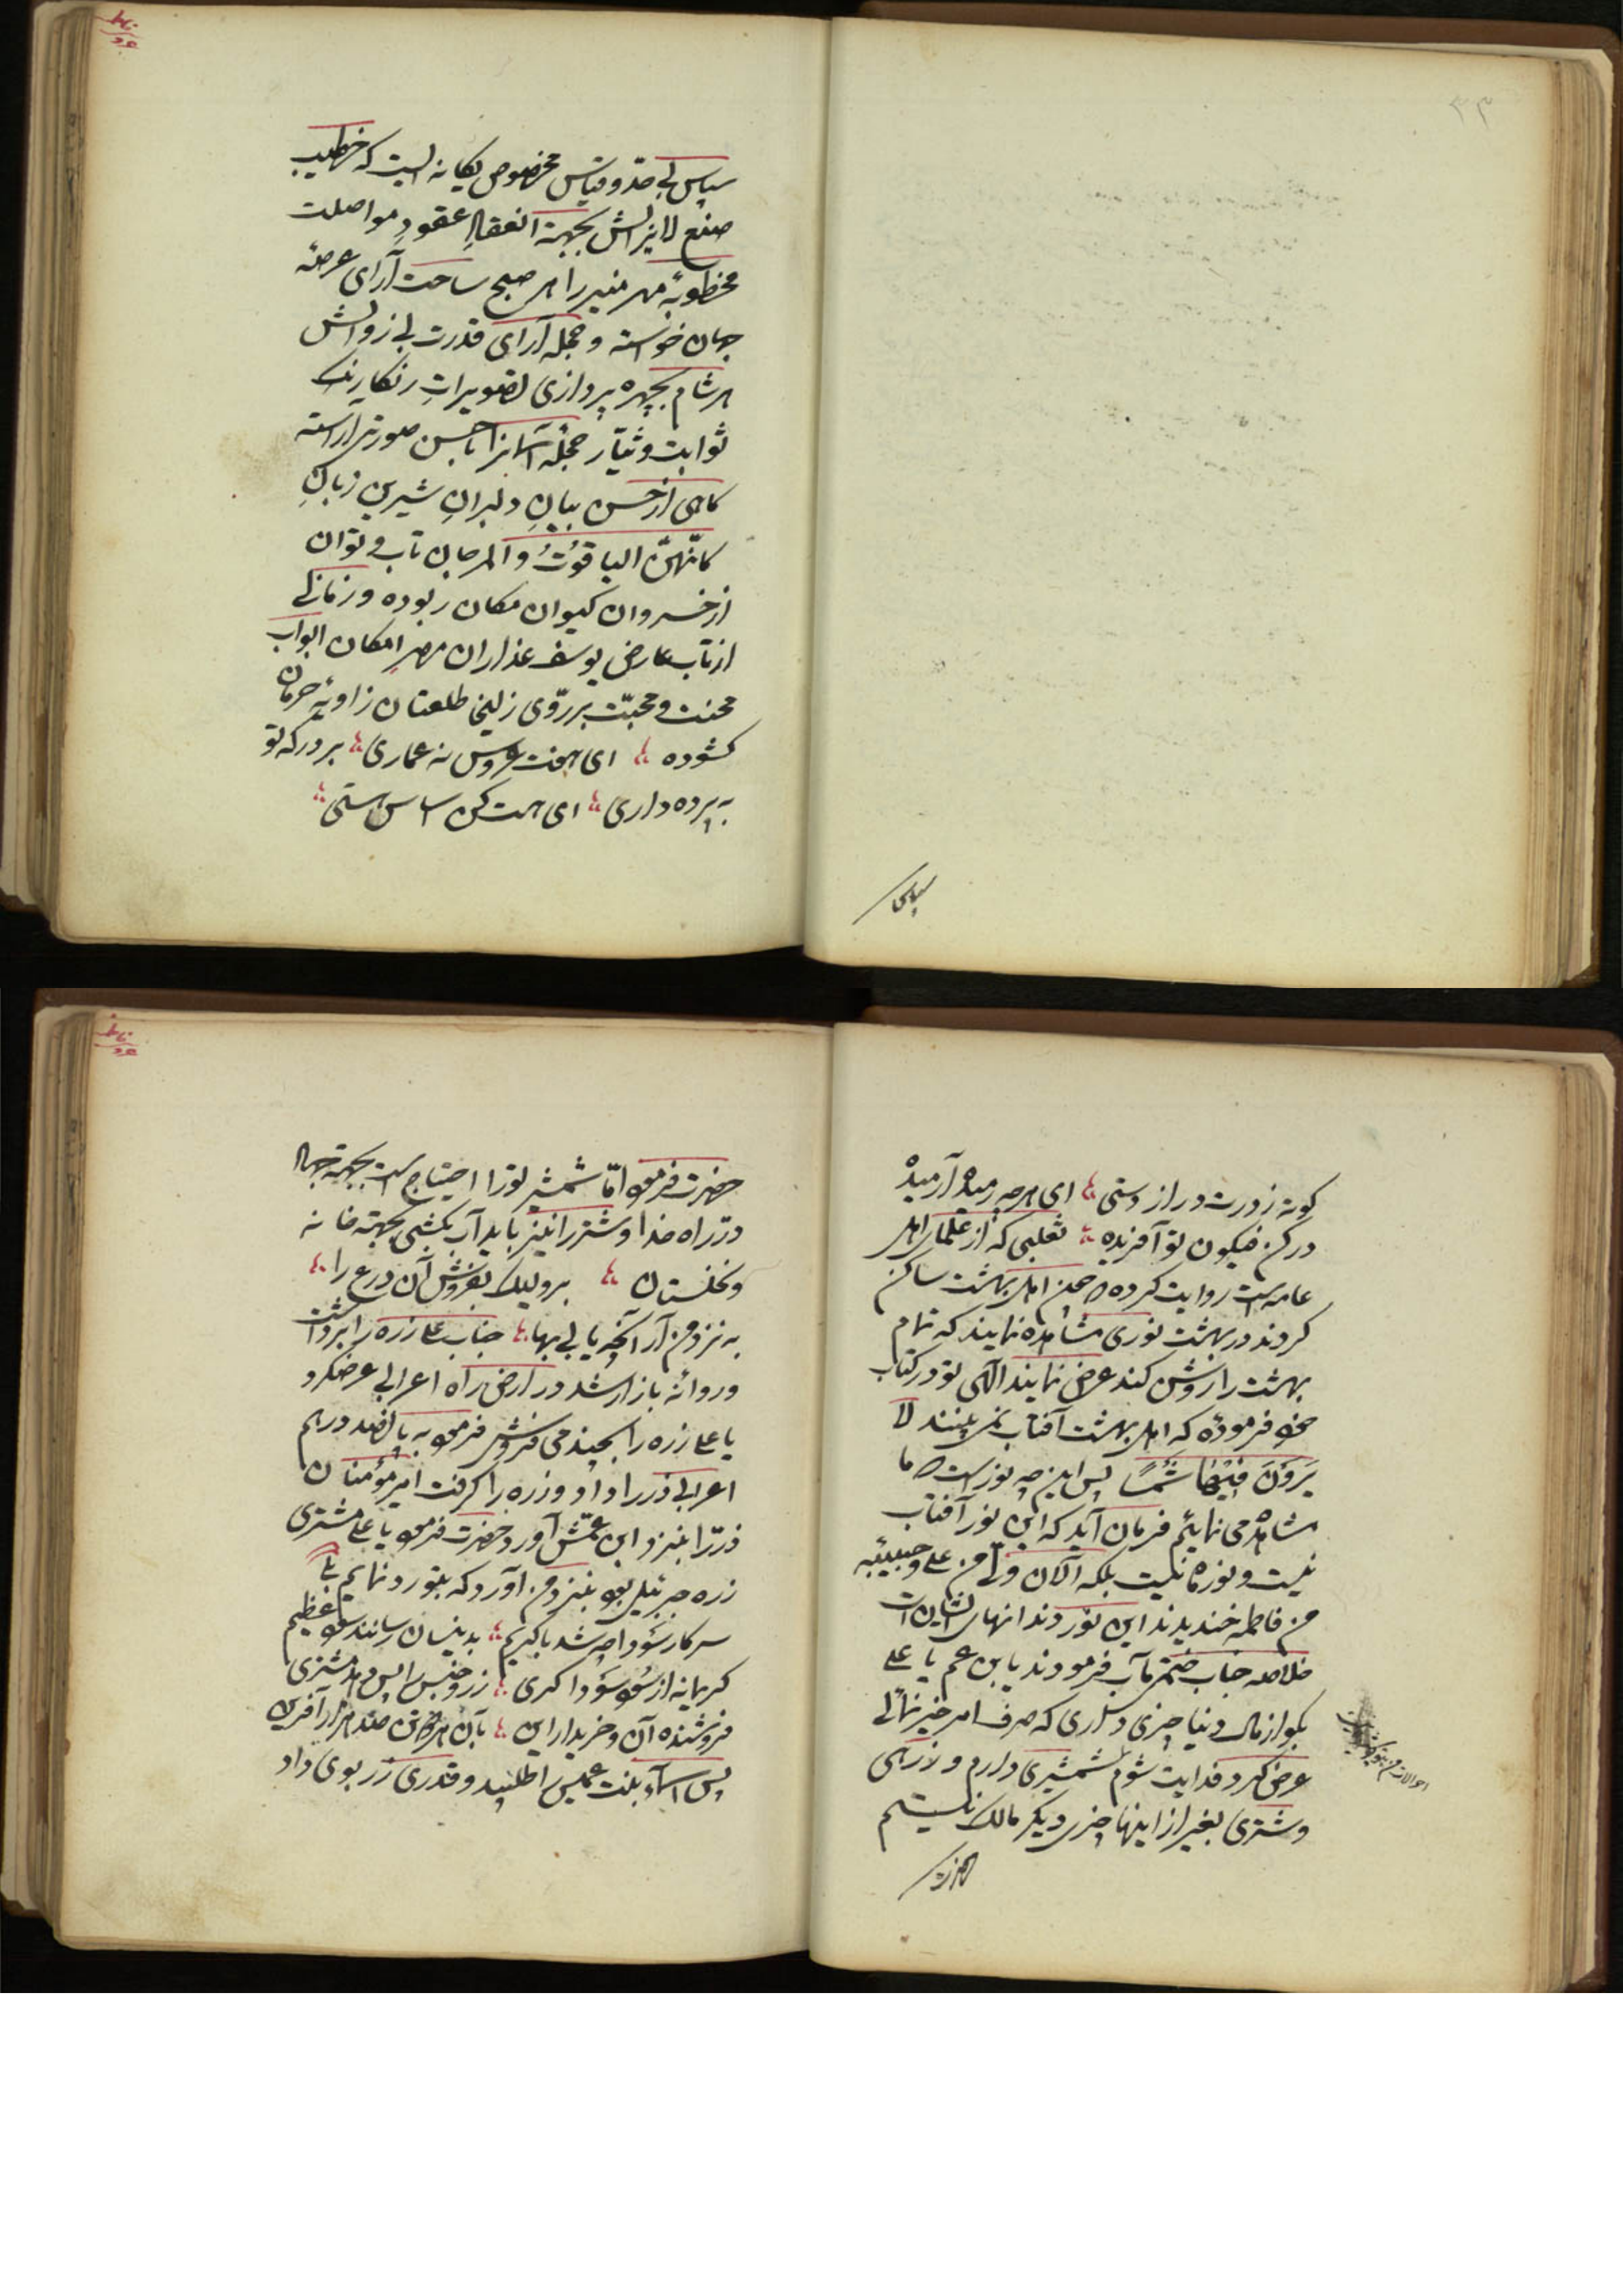 ۳۴
سپاس بی حدّ و قیاس مخصوص یگانه ایست که خطیب
صنع لایزالش بجهة انعقاد عقودِ مواصلت
مخطوبهٔ مهر منیر را هر صبح ساحت آرای عرصهٔ
جهان خواسته و حجله آرای قدرت بی زوالش
هر شام بچهره پردازی تصویراتِ رنگارنگ
ثوابت و سیّار حجلهٔ آسمانرا باحسن صورتی آراسته
گاهی از حسن بیانِ دلبرانِ شیرین زبانِ
کانّهنّ الیاقوتُ والمرجان تاب و توان
از خسروان کیوان مکان ربوده و زمانی
از تاب عارض یوسف عذاران مصر امکان ابواب
محنت و محبّت بر روّی زلیخا طلعتان زاویهٔ حرمان
گشوده ای هفت عروس نه عماری بر درگه تو
به پرده داری ای هست کن اساس هستی
کوته ز درت دراز دستی ای هر چه رمیده آرمیده
در کن فیکون تو آفریده ثعلبی که از علمای اهل
عامه است روایت کرده چون اهل بهشت ساکن
کردند در بهشت نوری مشاهده نمایند که تمام
بهشت را روشن کند عرض نمایند الهی تو در کتاب
خود فرموده که اهل بهشت آفتاب نمی بینند لا
یَرَوْنَ فِیْهَا شَمْسًا پس این چه نور است که ما
مشاهده می نمائیم فرمان آید که این نور آفتاب
نیست و نور ماه نیست بلکه الآن ولّی من علی و حبیبهٔ
من فاطمه خندیدند این نور دندانهای ایشان است
خلاصه جناب ختمی مآب فرمودند یابن عم یا علی
بگو از مال دنیا چیزی داری که صرف امر خیر نمائی
عرض کرد فدایت شوم شمشیری دارم و زرهی
و شتری بغیر از اینها چیزی دیگر مالک نیستم
حضرت فرمود امّا شمشیر تو را احتیاج است بجهة جهاد
در راه خدا و شتر را نیز باید آب بکشی بجهة خانه
و نخلستان برو لیک بفروش آن درع را
به نزد من آر آنچه یابی بها جناب علی زره را برداشت
و روانهٔ بازار شد در ارض راه اعرابی عرض کرد
یا علی زره را بچند می فروشی فرمود به پانصد درهم
اعرابی زر را داد و زره را گرفت امیر مؤمنان
زر را بنزد ابن عمّش آورد حضرت فرمود یا علی مشتری
زره جبرئیل بود بنزد من آورد که بتو رد نمایم
سرکار سودا چه شد با کریم بدینسان رسانند سود عظیم
کریمانه از سود سودا گری زر و جنس را پس دهد مشتری
فروشندهٔ آن و خریدار این بآن هر دو تن صد هزار آفرین
پس اسماء بنت عمیس را طلبید و قدری زر بوی داد